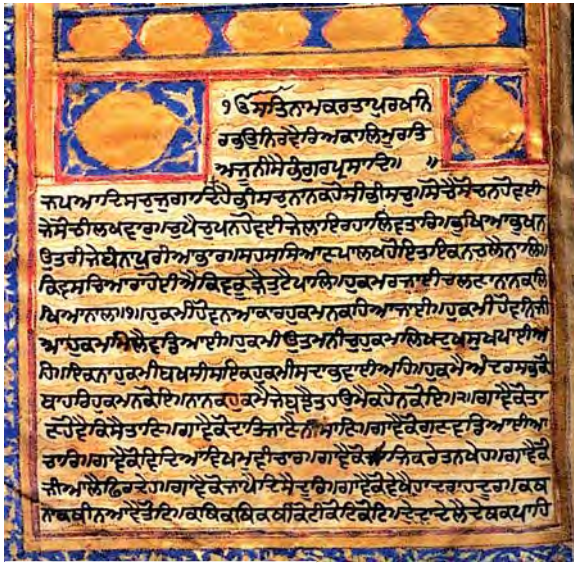 ੧ੳ ਸਤਿਨਾਮਕਰਤਾਪੁਰਖਨਿ
ਰਭਉਨਿਰਵੈਰਿਅਕਾਲਿਮੂਰਤਿ
ਅਜੂਨੀਸੈਭੰਗੁਰਪ੍ਰਸਾਦਿ॥ ॥
ਜਪਆਦਿਸਚੁਜੁਗਾਦਿਹੈਭੀਸਚੁਨਾਨਕਹੋਸੀਭੀਸਚੁ॥ਸੋਚੈਸੋਚਨਹੋਵਈ
ਜੇਸੋਚੀਲਖਵਾਰ॥ਚੁਪੈਚੁਪਨਹੋਵਈਜੇਲਾਇਰਹਾਲਿਵਤਾਰ॥ਭੁਖਿਆਭੁਖਨ
ਉਤਰੀਜੇਬੰਨਾਪੁਰੀਆਭਾਰ॥ਸਹਸਸਿਆਣਪਾਲਖਹੋਇਤਇਕਨਚਲੈਨਾਲਿ॥
ਕਿਵਸਚਿਆਰਾਹੋਈਐਕਿਵਕੂੜੈਤੁਟੈਪਾਲਿ॥ਹੁਕਮਰਜਾਈਚਲਣਾਨਾਨਕਲਿ
ਖਿਆਨਾਲ॥੧॥ਹੁਕਮੀਹੋਵਨਆਕਾਰਹੁਕਮਨਕਹਿਆਜਾਈ॥ਹੁਕਮੀਹੋਵਨਿਜੀ
ਆਹੁਕਮਮਿਲੈਵਡਿਆਈ॥ਹੁਕਮੀਉਤਮਨੀਚੁਹੁਕਮਲਿਖਿਦੁਖਸੁਖਪਾਈਅ
ਹਿ॥ਇਕਨਾਹੁਕਮੀਬਖਸੀਸਇਕਿਹੁਕਮੀਸਦਾਭਵਾਈਅਹਿ॥ਹੁਕਮੈਅੰਦਰਸਭੁਕੋ
ਬਾਹਰਿਹੁਕਮਨਕੋਇ॥ਨਾਨਕਹੁਕਮੈਜੇਬੁਝੈਤਹਉਮੈਕਹੈਨਕੋਇ॥੨॥ਗਾਵੈਕੋਤਾ
ਣਹੋਵੈਕਿਸੈਤਾਣਿ॥ਗਾਵੈਕੋਦਾਤਿਜਾਣੈਨੀਸਾਣਿ॥ਗਾਵੈਕੋਗੁਣਵਡਿਆਈਆ
ਚਾਰ॥ਗਾਵੈਕੋਵਿਦਿਆਵਿਖਮੁਵੀਚਾਰ॥ਗਾਵੈਕੋਸਾਜਿਕਰੇਤਨਖੇਹ॥ਗਾਵੈਕੋ
ਜੀਆਲੈਫਿਰਿਦੇਹ॥ਗਾਵੈਕੋਜਾਪੈਦਿਸੈਦੂਰਿ॥ਗਾਵੈਕੋਵੇਖੈਹਾਦਰਾਹਦੂਰ॥ਕਥ
ਨਾਕਥੀਨਆਵੈਤੋਟਿ॥ਕਥਿਕਥਿਕਥੀਕੋਟੀਕੋਟਿਕੋਟਿ॥ਦੇਦਾਦੇਲੈਦੇਥਕਪਾਹਿ